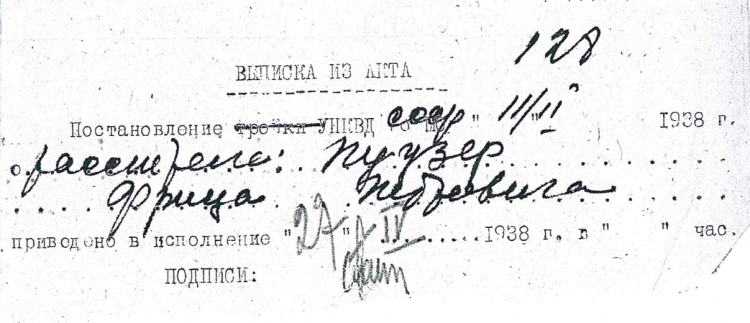 128
ВЫПИСКА ИЗ АКТА
Постановление тройки УНКВД ссср " 11/II " 1938 г.
о расстреле: Пуузер
Фрица Петровича
приведено в исполнение " 27 " IV 1938 г. в " " час.
ПОДПИСИ: